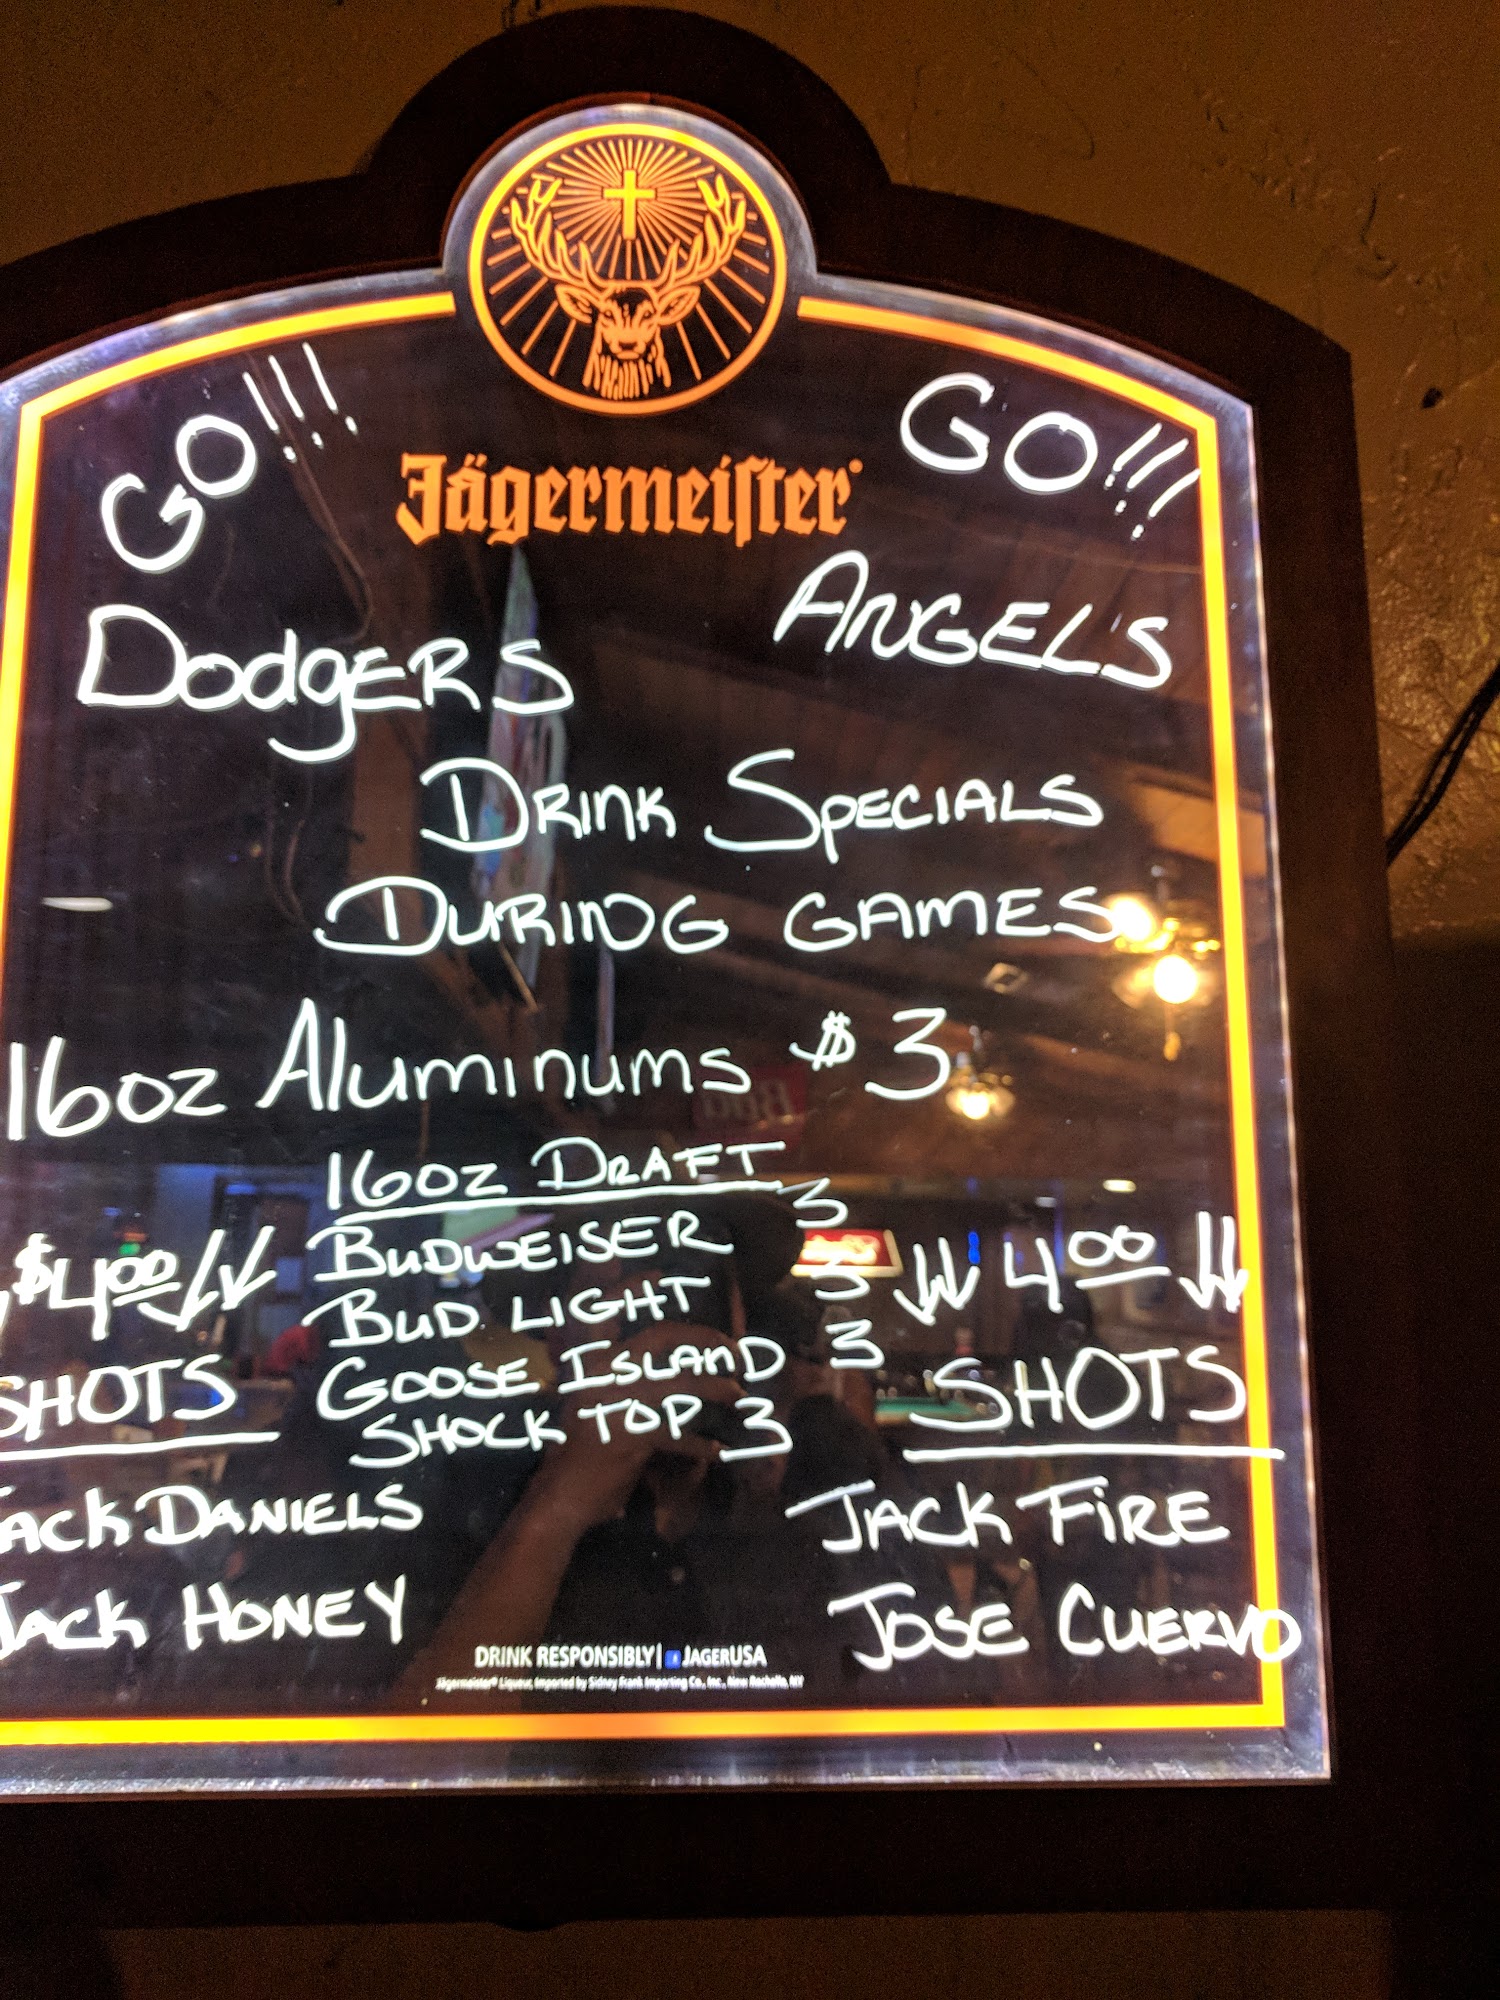 GO!!!
GO!!!
Jägermeiſter
DodgERS
ANGELS
DRINK SPECIALS
DURING GAMES
16oz Aluminums $3
16oz DRAFT
BUDWEISER 3
BUD LIGHT 3
GOOSE ISLAND 3
SHOCK TOP 3
$4.00
SHOTS
JACK DANIELS
JACK HONEY
4.00
SHOTS
JACK FIRE
JOSE CUERVO
DRINK RESPONSIBLY | JAGERUSA
Jägermeister® Liqueur, Imported by Sidney Frank Importing Co., Inc., New Rochelle, NY